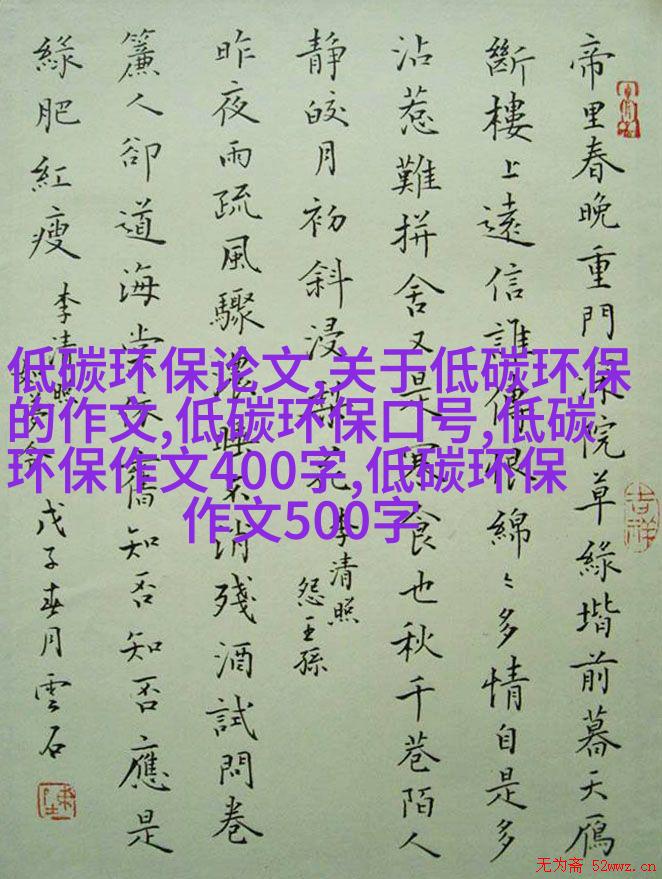 帝里春晚重門深院草綠堦前暮天鴈
斷樓上遠信誰傳恨綿〻多情自是多
沾惹難拼舍又是寒食也秋千巷陌人
静皎月初斜浸梨花
李清照
怨王孫
昨夜雨疏風驟濃睡不消殘酒試問卷
簾人卻道海棠依舊知否知否應是
綠肥紅瘦
李清照
如夢令
戊子春月雲石
低碳环保论文,关于低碳环保
的作文,低碳环保口号,低碳
环保作文400字,低碳环保
作文500字
吉祥
无为斋 52wwz.cn